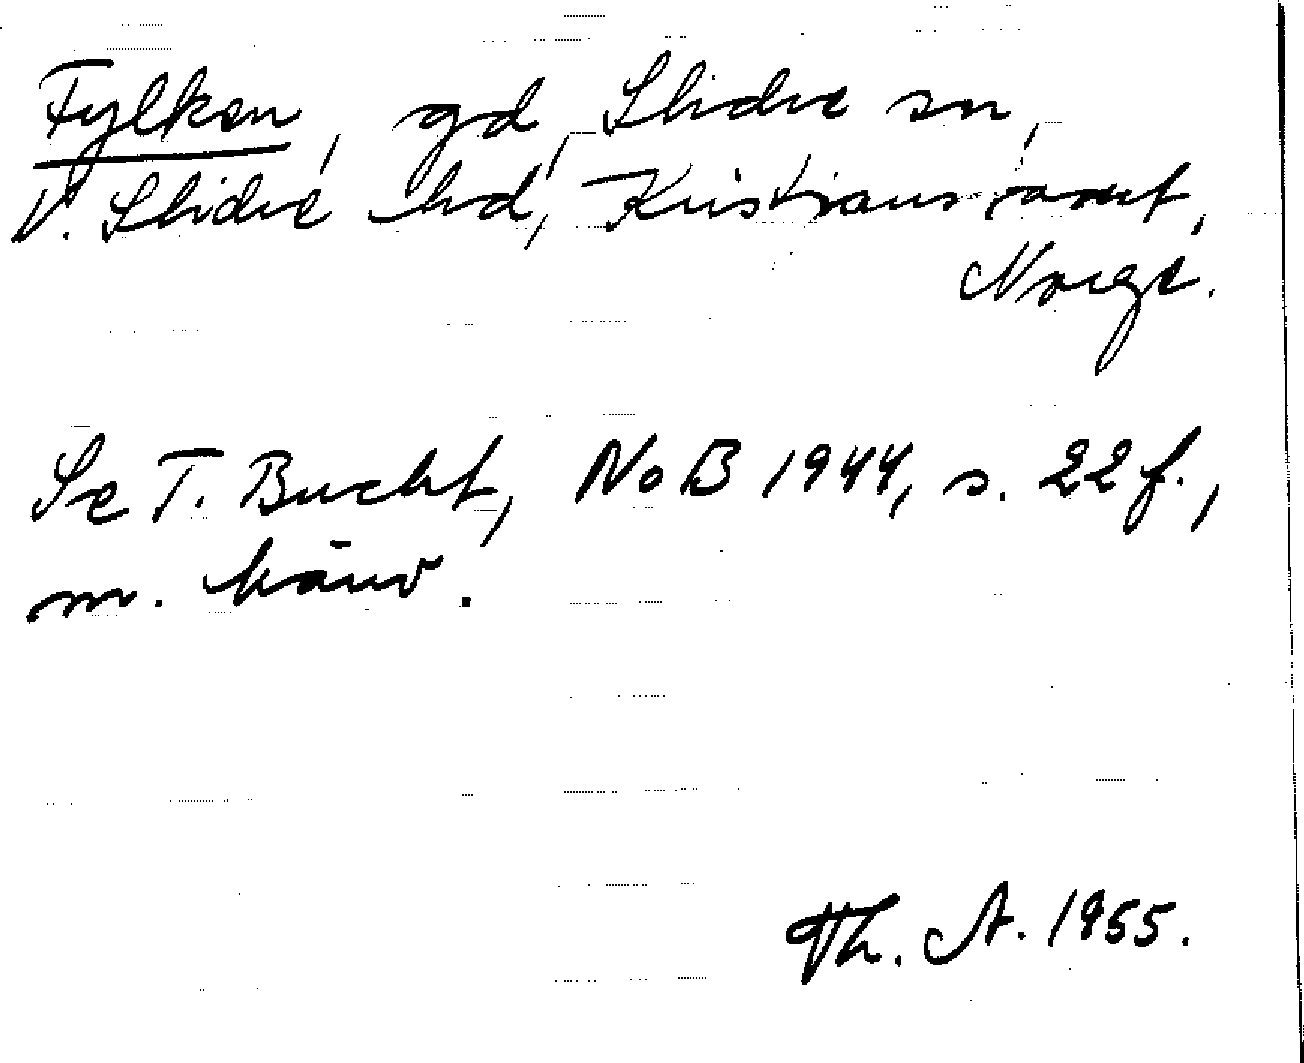 Fylken, gd, Slidre sn,
V. Slidre hd, Kristians amt,
Norge.
Se T. Bucht, NoB 1944, s. 22 f.,
m. hänv.
Th. A. 1955.